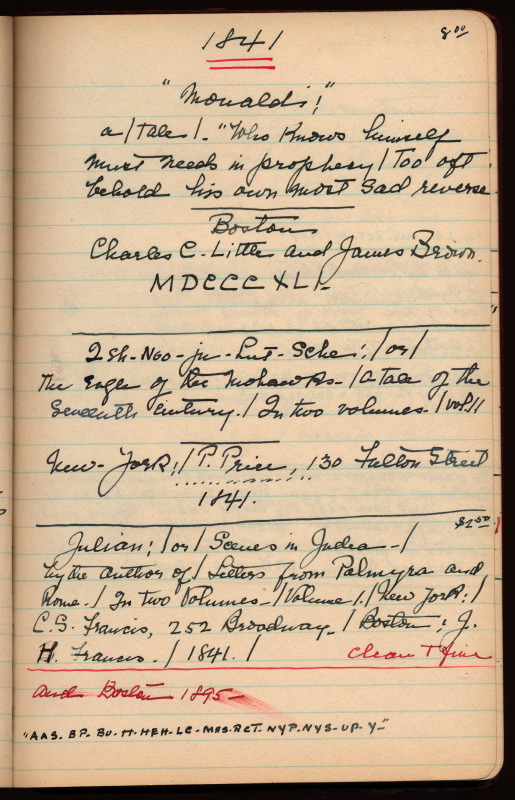 8 00
1841
"Monaldi;"
a/tale/. "Who Knows himself
must needs in prophesy/Too oft
behold his own most sad reverse.
Boston
Charles C. Little and James Brown.
MDCCCXLI.
Esh-Noo-ju-Lut-Sche;/or/
The Eagle of the Mohawks-/A tale of the
Seventeenth Century./In two volumes-/vol.1/
New-York;/P. Price, 130 Fulton Street
1841.
$2 50
Julian;/or/Scenes in Judea-/
by the author of/Letters from Palmyra and
Rome./In two Volumes-/Volume 1./New York:/
C.S. Francis, 252 Broadway-/Boston: J.
H. Francis./1841./ Clean + fine
and Boston 1895-
"AAS. BP. BU. H. HEH. LC-MFS. RCT. NYP. NYS-UP-Y-"